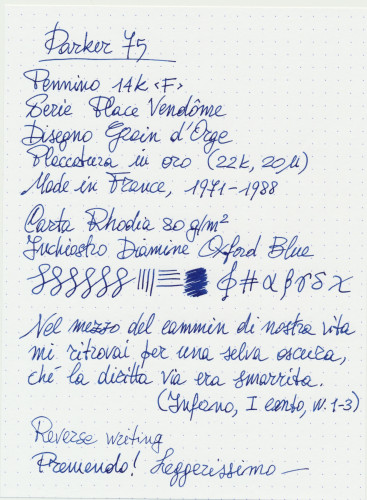 Parker 75
Pennino 14k <F>
Serie Place Vendôme
Disegno Grain d'Orge
Placcatura in oro (22k, 20µ)
Made in France, 1971-1988
Carta Rhodia 80 g/m²
Inchiostro Diamine Oxford Blue
# α β γ δ χ
Nel mezzo del cammin di nostra vita
mi ritrovai per una selva oscura,
ché la diritta via era smarrita.
(Inferno, I canto, vv. 1-3)
Reverse writing
Premendo! Leggerissimo —